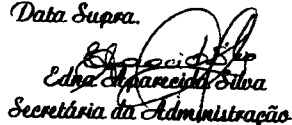 Data Supra.
Edna Aparecida Silva
Secretária da Administração